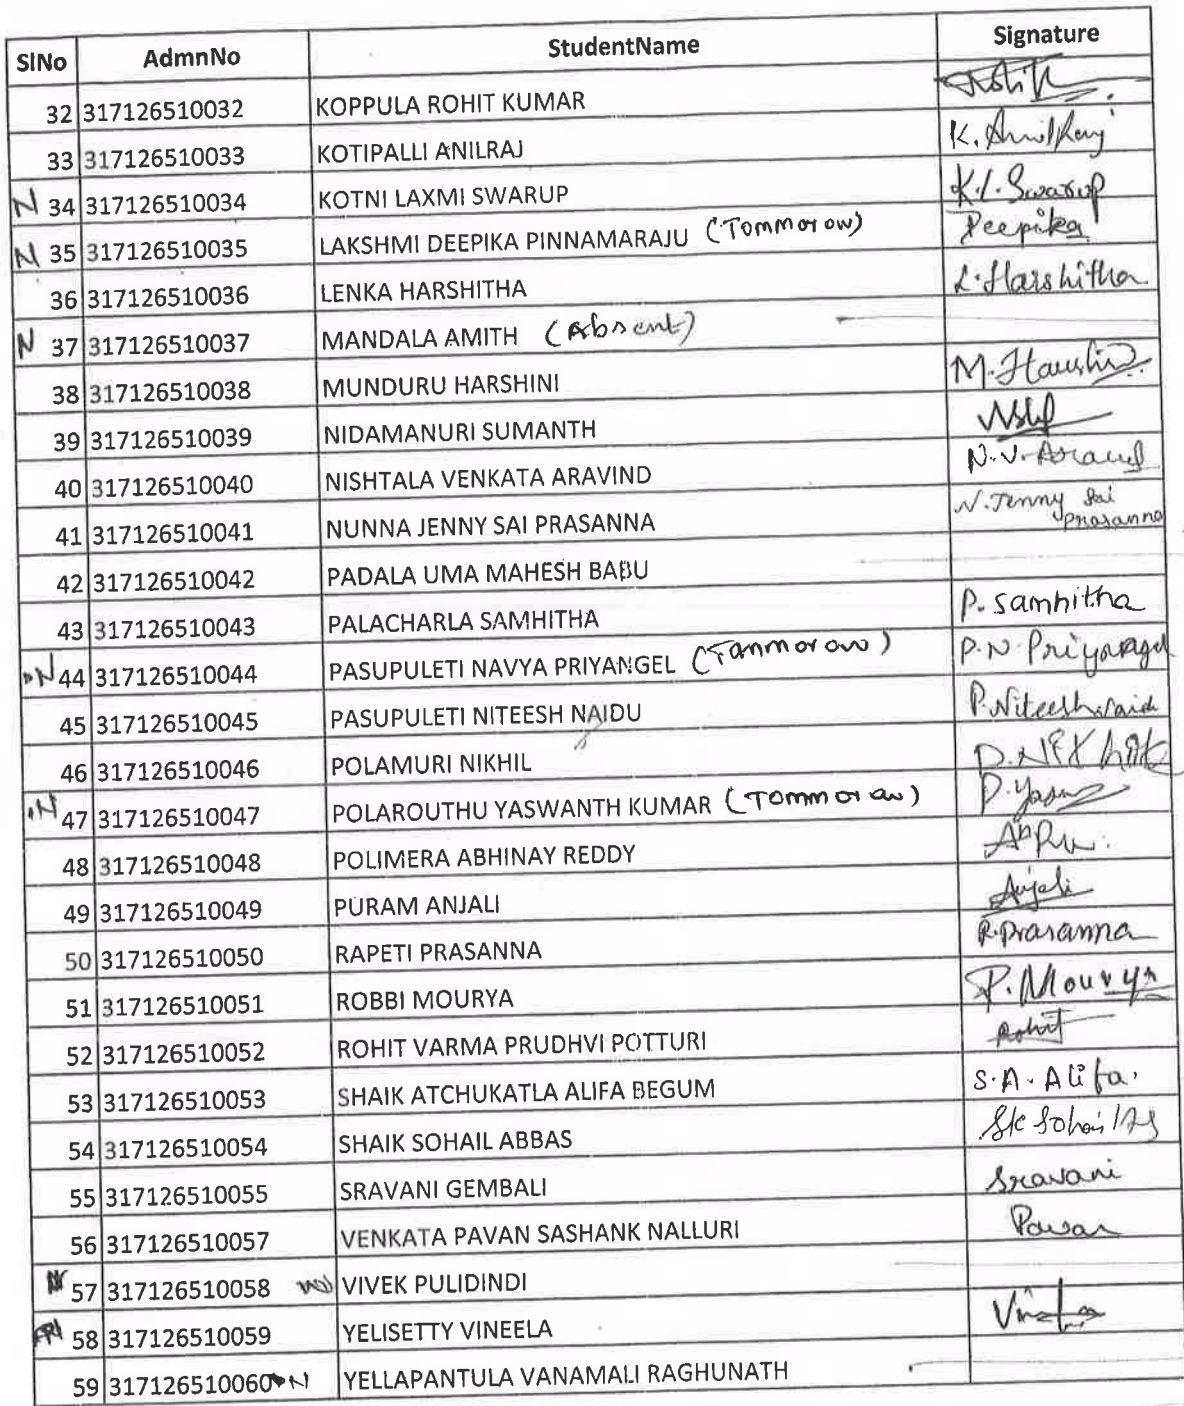 SlNo AdmnNo StudentName Signature
32 317126510032 KOPPULA ROHIT KUMAR Rohit
33 317126510033 KOTIPALLI ANILRAJ K. Anil Raj
N 34 317126510034 KOTNI LAXMI SWARUP K.l. Swarup
N 35 317126510035 LAKSHMI DEEPIKA PINNAMARAJU (Tommorow) Deepika
36 317126510036 LENKA HARSHITHA L. Harshitha
N 37 317126510037 MANDALA AMITH (Absent)
38 317126510038 MUNDURU HARSHINI M. Harshini
39 317126510039 NIDAMANURI SUMANTH
40 317126510040 NISHTALA VENKATA ARAVIND N.V. Aravind
41 317126510041 NUNNA JENNY SAI PRASANNA N. Jenny Sai Prasanna
42 317126510042 PADALA UMA MAHESH BABU
43 317126510043 PALACHARLA SAMHITHA P. Samhitha
N 44 317126510044 PASUPULETI NAVYA PRIYANGEL (Tommorow) P.N. Priyangel
45 317126510045 PASUPULETI NITEESH NAIDU P. Niteesh naid
46 317126510046 POLAMURI NIKHIL P. Nikhil
N 47 317126510047 POLAROUTHU YASWANTH KUMAR (Tommorow) P. Yasw
48 317126510048 POLIMERA ABHINAY REDDY
49 317126510049 PURAM ANJALI Anjali
50 317126510050 RAPETI PRASANNA R. Prasanna
51 317126510051 ROBBI MOURYA R. Mourya
52 317126510052 ROHIT VARMA PRUDHVI POTTURI Rohit
53 317126510053 SHAIK ATCHUKATLA ALIFA BEGUM S.A. Alifa.
54 317126510054 SHAIK SOHAIL ABBAS Sk Sohail
55 317126510055 SRAVANI GEMBALI Sravani
56 317126510057 VENKATA PAVAN SASHANK NALLURI Pavan
N 57 317126510058 VIVEK PULIDINDI
58 317126510059 YELISETTY VINEELA Vineela
59 317126510060 N YELLAPANTULA VANAMALI RAGHUNATH